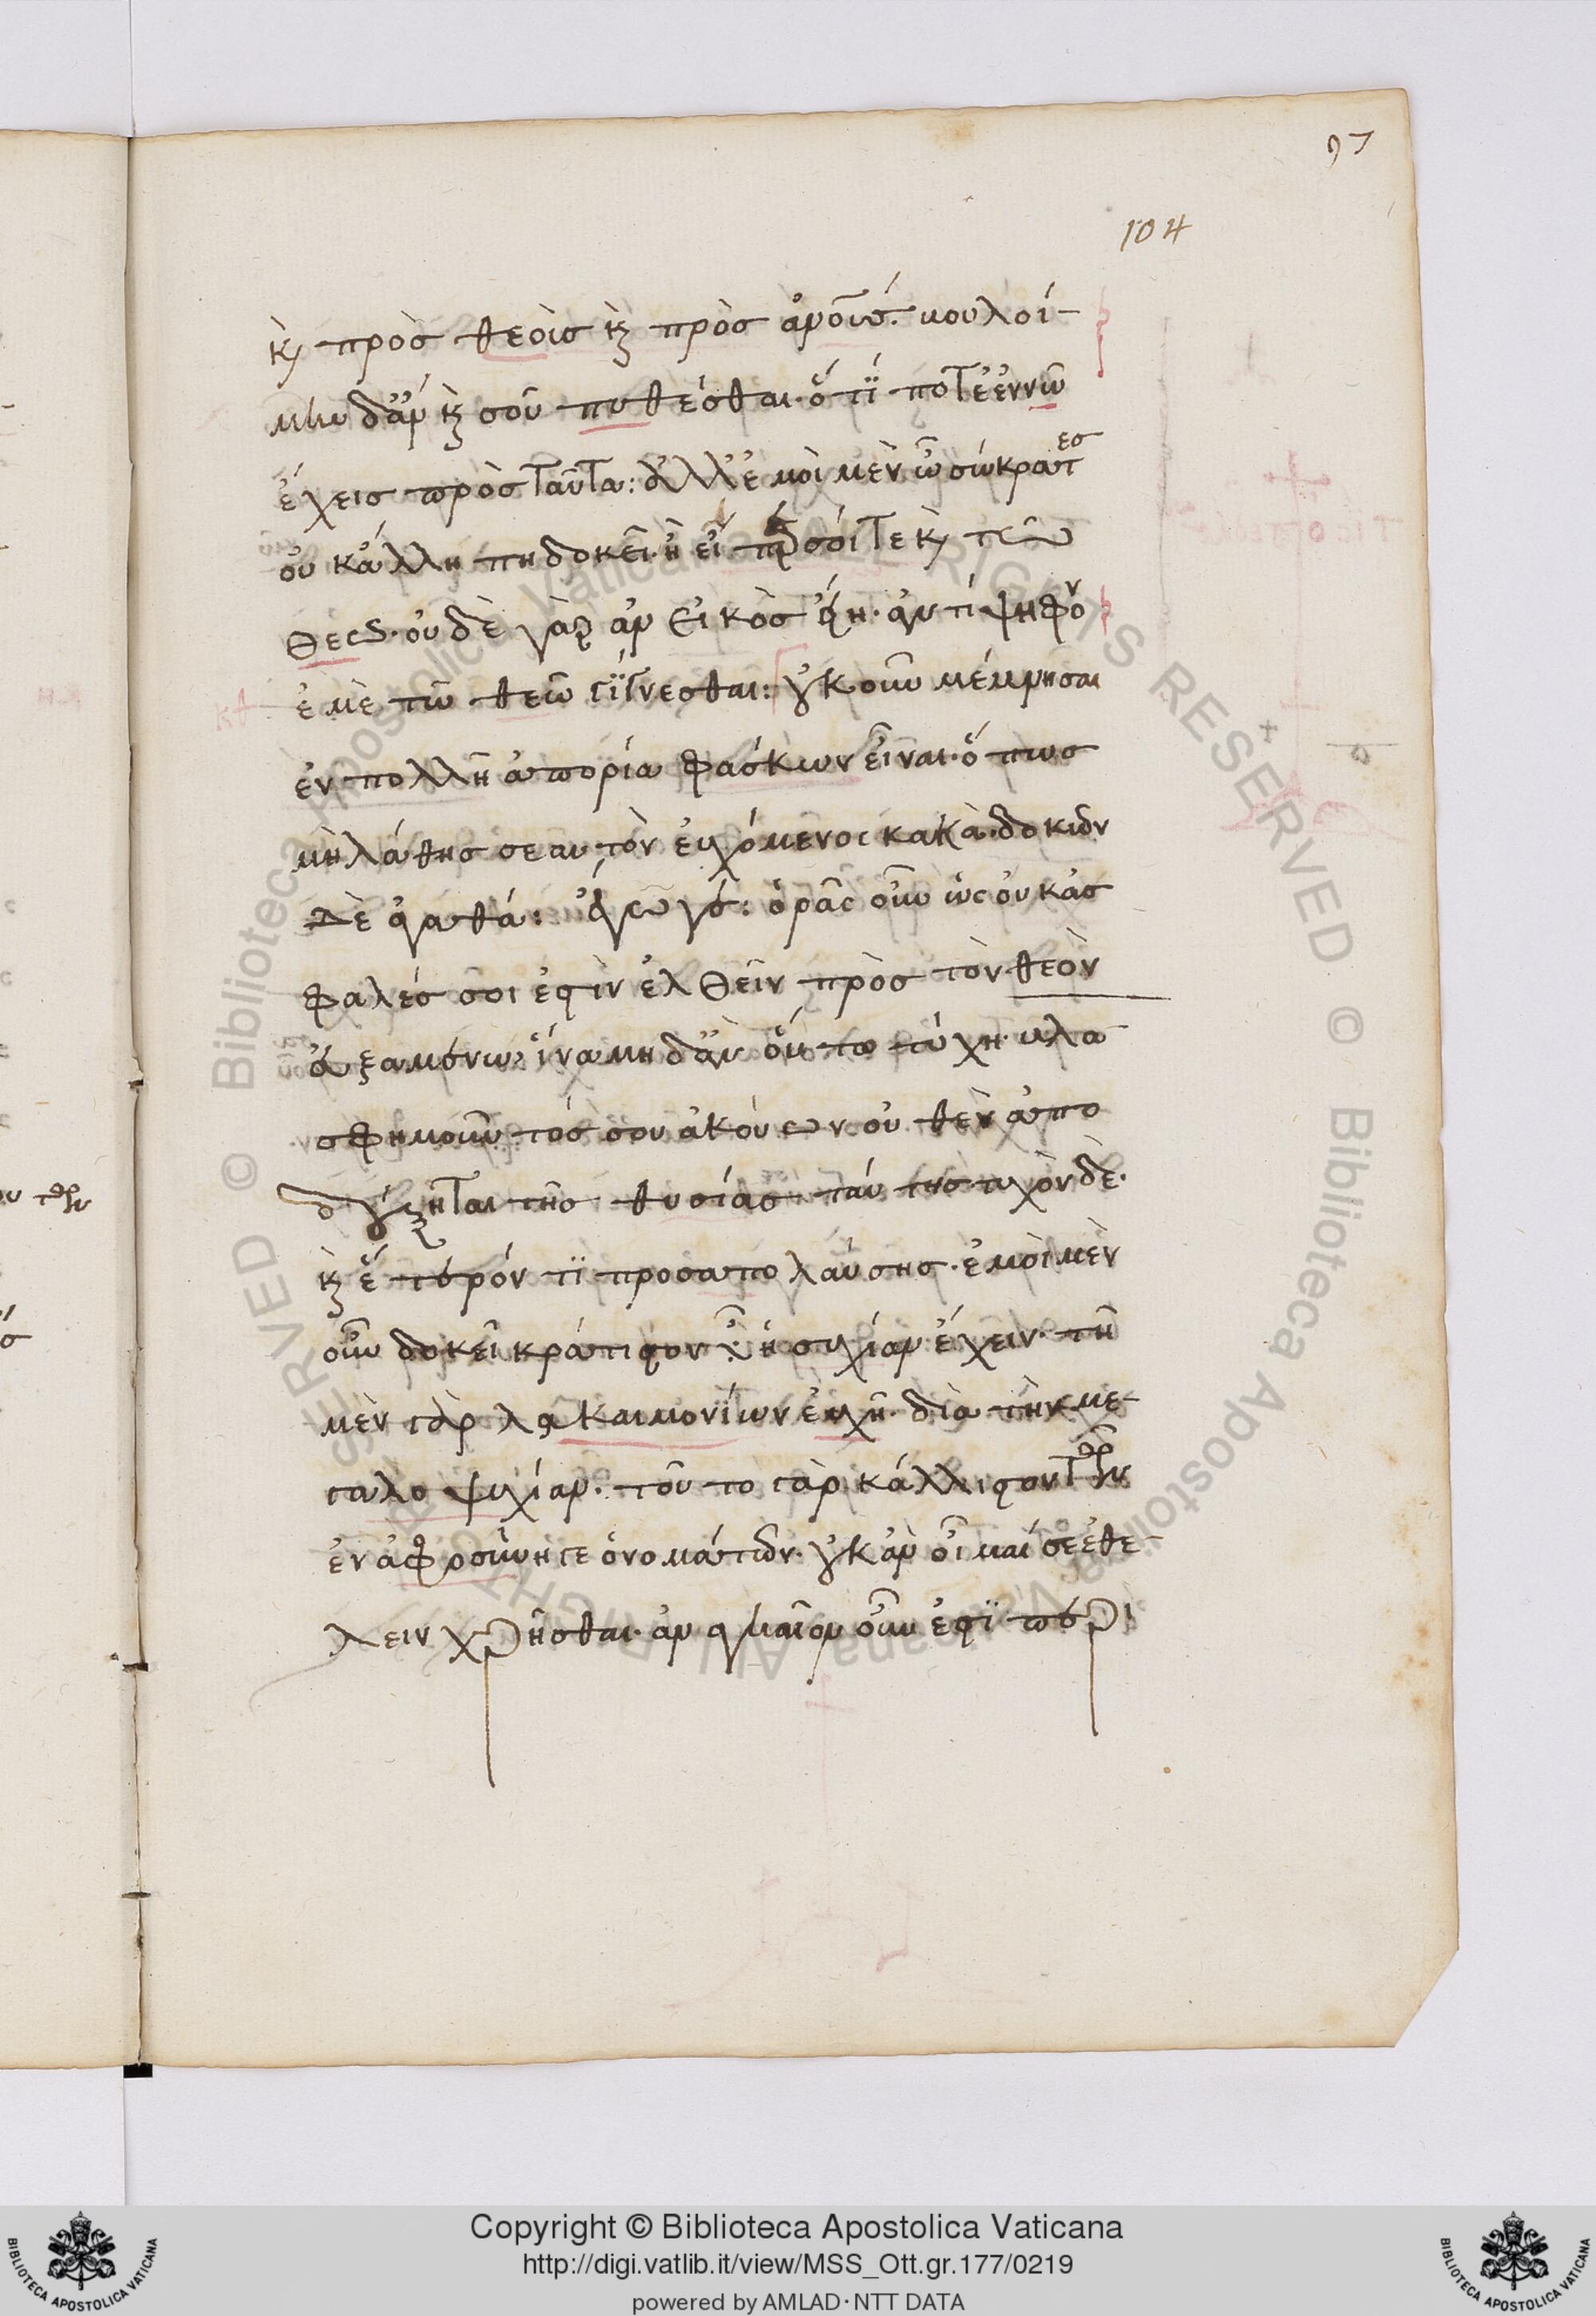 97
104
κ(αὶ) πρὸς θεοὺς κ(αὶ) πρὸς ἀν(θρώπ)ους. βουλοί-
μην δ' ἂν κ(αὶ) σοῦ πυθέσθαι· ὅ τί ποτ' ἐν νῶ
ἔχεις πρὸς ταῦτα: ἀλλ' ἐμοὶ μὲν ὦ σώκρατες
οὐκ ἄλλη πη δοκεῖ· ἢ εἴπερ σοί τε κ(αὶ) τῶ
θεῶ· οὐδὲ γὰρ ἂν εἰκὸς εἴη· ἀντίψηφον
ἐμὲ τῶ θεῶ γίγνεσθαι: οὐκοῦν μέμνησαι
ἐν πολλῆ ἀπορία φάσκων εἶναι· ὅπως
μὴ λάθης σεαυτὸν εὐχόμενος κακὰ· δοκῶν
δὲ ἀγαθά: ἔγωγε: ὁρᾶς οὖν ὡς οὐκ ἀσ
φαλές σοι ἐστὶν ἐλθεῖν πρὸς τὸν θεὸν
εὐξαμένω; ἵνα μηδ' ἂν οὕτω τύχη· βλα
σφημοῦντός σου ἀκούων οὐθὲν ἀπο
δέξηται τῆς θυσίας ταύτης· τυχὸν δὲ·
κ(αὶ) ἕτερόν τι προσαπολαύσης· ἐμοὶ μὲν
οὖν δοκεῖ κράτιστον εἶ(ναι) ἡσυχίαν ἔχειν· τῆ
μὲν γὰρ λακαιμονίων εὐχῆ· διὰ τὴν με-
γαλοψυχίαν· τοῦτο γὰρ κάλλιστον τῶν
ἐν ἀφροσύνη γε ὀνομάτων· οὐκ ἂν οἶμαί σε ἐθέ-
λειν χρῆσθαι· ἀναγκαῖον οὖν ἐστὶ περὶ
Copyright © Biblioteca Apostolica Vaticana
http://digi.vatlib.it/view/MSS_Ott.gr.177/0219
powered by AMLAD·NTT DATA